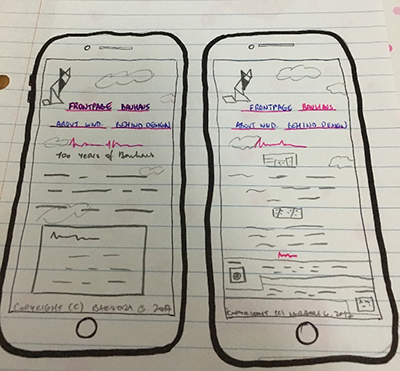 FRONTPAGE BAUHAUS
ABOUT WUD BEHIND DESIGN
100 years of Bauhaus
COPYRIGHT (C)
FRONTPAGE BAUHAUS
ABOUT WUD BEHIND DESIGN
COPYRIGHT (C)